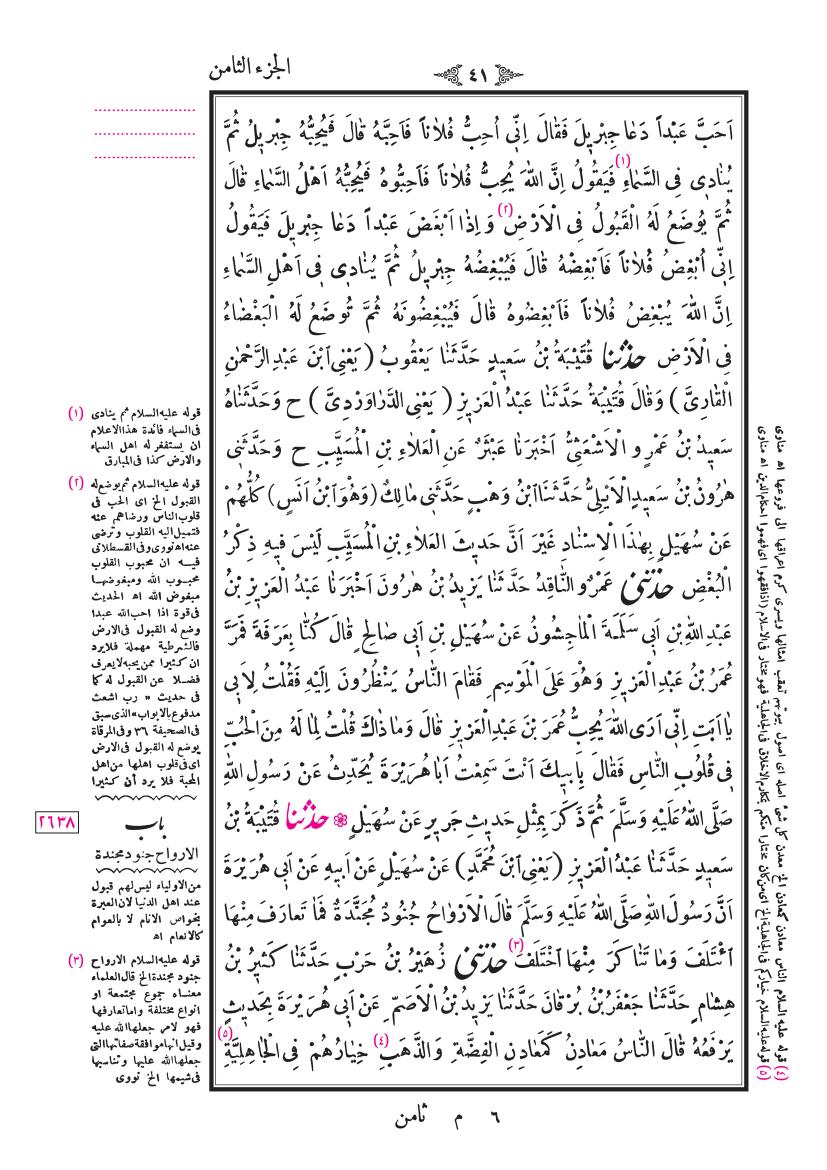 الجزء الثامن
٤١
اَحَبَّ عَبْداً دَعَا جِبْرِيلَ فَقَالَ اِنِّى اُحِبُّ فُلاَناً فَاَحِبَّهُ قَالَ فَيُحِبُّهُ جِبْرِيلُ ثُمَّ
يُنَادِى فِى السَّمَاءِ (١) فَيَقُولُ اِنَّ اللهَ يُحِبُّ فُلاَناً فَاَحِبُّوهُ فَيُحِبُّهُ اَهْلُ السَّمَاءِ قَالَ
ثُمَّ يُوضَعُ لَهُ الْقَبُولُ فِى الْاَرْضِ (٢) وَاِذَا اَبْغَضَ عَبْداً دَعَا جِبْرِيلَ فَيَقُولُ
اِنِّى اُبْغِضُ فُلاَناً فَاَبْغِضْهُ قَالَ فَيُبْغِضُهُ جِبْرِيلُ ثُمَّ يُنَادِى فِى اَهْلِ السَّمَاءِ
اِنَّ اللهَ يُبْغِضُ فُلاَناً فَاَبْغِضُوهُ قَالَ فَيُبْغِضُونَهُ ثُمَّ تُوضَعُ لَهُ الْبَغْضَاءُ
فِى الْاَرْضِ حدثنا قُتَيْبَةُ بْنُ سَعِيدٍ حَدَّثَنَا يَعْقُوبُ ( يَعْنِى ابْنَ عَبْدِ الرَّحْمٰنِ
الْقَارِىَّ ) وَقَالَ قُتَيْبَةُ حَدَّثَنَا عَبْدُ الْعَزِيزِ ( يَعْنِى الدَّرَاوَرْدِىَّ ) ح وَحَدَّثَنَاهُ
سَعِيدُ بْنُ عَمْرٍو الْاَشْعَثِىُّ اَخْبَرَنَا عَبْثَرٌ عَنِ الْعَلاَءِ بْنِ الْمُسَيَّبِ ح وَحَدَّثَنِى
هٰرُونُ بْنُ سَعِيدٍ الْاَيْلِىُّ حَدَّثَنَا ابْنُ وَهْبٍ حَدَّثَنِى مَالِكٌ (وَهُوَ ابْنُ اَنَسٍ) كُلُّهُمْ
عَنْ سُهَيْلٍ بِهٰذَا الْاِسْنَادِ غَيْرَ اَنَّ حَدِيثَ الْعَلاَءِ بْنِ الْمُسَيَّبِ لَيْسَ فِيهِ ذِكْرُ
الْبُغْضِ حدثنى عَمْرٌو النَّاقِدُ حَدَّثَنَا يَزِيدُ بْنُ هٰرُونَ اَخْبَرَنَا عَبْدُ الْعَزِيزِ بْنُ
عَبْدِ اللهِ بْنِ اَبِى سَلَمَةَ الْمَاجِشُونُ عَنْ سُهَيْلِ بْنِ اَبِى صَالِحٍ قَالَ كُنَّا بِعَرَفَةَ فَمَرَّ
عُمَرُ بْنُ عَبْدِ الْعَزِيزِ وَهُوَ عَلَى الْمَوْسِمِ فَقَامَ النَّاسُ يَنْظُرُونَ اِلَيْهِ فَقُلْتُ لِاَبِى
يَا اَبَتِ اِنِّى اَرَى اللهَ يُحِبُّ عُمَرَ بْنَ عَبْدِ الْعَزِيزِ قَالَ وَمَا ذَاكَ قُلْتُ لِمَا لَهُ مِنَ الْحُبِّ
فِى قُلُوبِ النَّاسِ فَقَالَ بِاَبِيكَ اَنْتَ سَمِعْتُ اَبَا هُرَيْرَةَ يُحَدِّثُ عَنْ رَسُولِ اللهِ
صَلَّى اللهُ عَلَيْهِ وَسَلَّمَ ثُمَّ ذَكَرَ بِمِثْلِ حَدِيثِ جَرِيرٍ عَنْ سُهَيْلٍ حدثنا قُتَيْبَةُ بْنُ
سَعِيدٍ حَدَّثَنَا عَبْدُ الْعَزِيزِ ( يَعْنِى ابْنَ مُحَمَّدٍ ) عَنْ سُهَيْلٍ عَنْ اَبِيهِ عَنْ اَبِى هُرَيْرَةَ
اَنَّ رَسُولَ اللهِ صَلَّى اللهُ عَلَيْهِ وَسَلَّمَ قَالَ الْاَرْوَاحُ جُنُودٌ مُجَنَّدَةٌ فَمَا تَعَارَفَ مِنْهَا
ائْتَلَفَ وَمَا تَنَاكَرَ مِنْهَا اخْتَلَفَ (٣) حدثنى زُهَيْرُ بْنُ حَرْبٍ حَدَّثَنَا كَثِيرُ بْنُ
هِشَامٍ حَدَّثَنَا جَعْفَرُ بْنُ بُرْقَانَ حَدَّثَنَا يَزِيدُ بْنُ الْاَصَمِّ عَنْ اَبِى هُرَيْرَةَ بِحَدِيثٍ
يَرْفَعُهُ قَالَ النَّاسُ مَعَادِنُ كَمَعَادِنِ الْفِضَّةِ وَالذَّهَبِ (٤) خِيَارُهُمْ فِى الْجَاهِلِيَّةِ (٥)
(١) قوله عليه السلام ثم ينادى
فى السماء فائدة هذا الاعلام
ان يستغفر له اهل السماء
والارض كذا فى المبارق
(٢) قوله عليه السلام ثم يوضع له
القبول الخ اى الحب فى
قلوب الناس ورضاهم عنه
فتميل اليه القلوب وترضى
عنه اه نووى وفى القسطلانى
فيه ان محبوب القلوب
محبوب الله ومبغوضها
مبغوض الله اه الحديث
فى قوة اذا احب الله عبدا
وضع له القبول فى الارض
فالشرطية مهملة فلا يرد
ان كثيرا ممن يحبه لا يعرف
فضلا عن القبول له كما
فى حديث « رب اشعث
مدفوع بالابواب» الذى سبق
فى الصحيفة ٣٦ وفى المرقاة
يوضع له القبول فى الارض
اى فى قلوب اهلها من اهل
المحبة فلا يرد أن كثيرا
٢٦٣٨
باب
الارواح جنود مجندة
من الاولياء ليس لهم قبول
عند اهل الدنيا لان العبرة
بخواص الانام لا بالعوام
كالانعام اه
(٣) قوله عليه السلام الارواح
جنود مجندة الخ قال العلماء
معناه جموع مجتمعة او
انواع مختلفة واما تعارفها
فهو لامر جعلها الله عليه
وقيل انها موافقة صفاتها التى
جعلها الله عليها وتناسبها
فى شيمها الخ نووى
(٤) قوله عليه السلام الناس معادن كمعادن الخ معدن كل شئ اصله اى اصول بيوتهم تعقب امثالها ويسرى كرم اعراقها الى فروعها اه مناوى
(٥) قوله عليه السلام خياركم فى الجاهلية الخ اى من كان مختارا منكم بمكارم الاخلاق فى الجاهلية فهو مختار فى الاسلام (اذا فقهوا) اى فهموا احكام الدين اه مناوى
٦ م ثامن